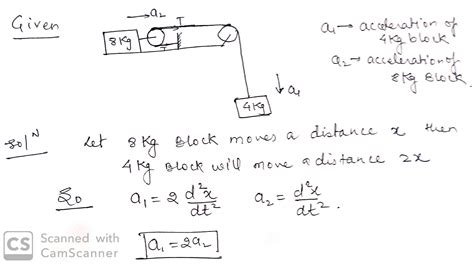 Given
→a₂
T
8Kg
T
↓a₁
4Kg
a₁→ acceleration of
4Kg block
a₂→ acceleration of
8Kg Block.
Solᴺ Let 8Kg Block moves a distance x then
4Kg Block will move a distance 2x
So a₁ = 2 d²x/dt² a₂ = d²x/dt².
a₁ = 2a₂
CS Scanned with
CamScanner